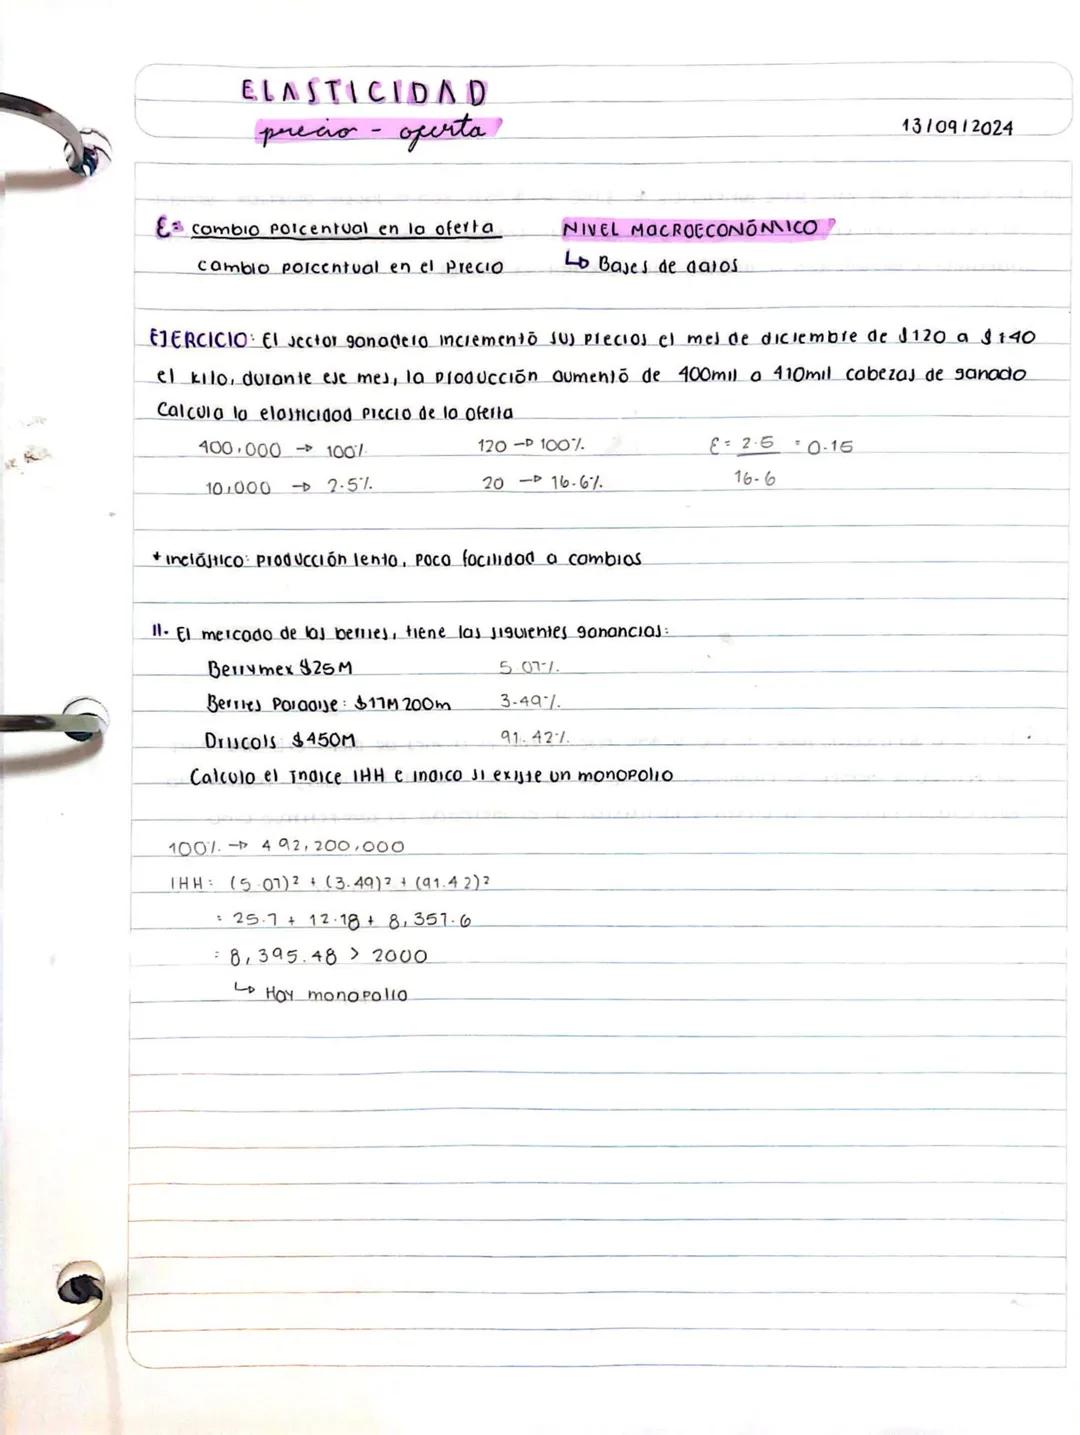 ELASTICIDAD
precio - oferta
13/09/2024
E= cambio porcentual en la oferta
cambio porcentual en el precio
NIVEL MACROECONÓMICO
↳ Bases de datos
EJERCICIO: El sector ganadero incrementó sus precios el mes de diciembre de $120 a $140
el kilo, durante ese mes, la producción aumentó de 400mil a 410mil cabezas de ganado
Calcula la elasticidad precio de la oferta
400,000 → 100%
120 → 100%
E= 2.5 = 0.15
10,000 → 2.5%
20 → 16.6%
16.6
* inelástico: producción lenta, poca facilidad a cambios
II. El mercado de las berries, tiene las siguientes ganancias:
Berrymex $25M 5.07%
Berries Paradise: $17M 200m 3.49%
Driscols $450M 91.42%
Calcula el Indice IHH e indica si existe un monopolio
100% → 492,200,000
IHH: (5.07)² + (3.49)² + (91.42)²
= 25.7 + 12.18 + 8,357.6
= 8,395.48 > 2000
↳ Hay monopolio